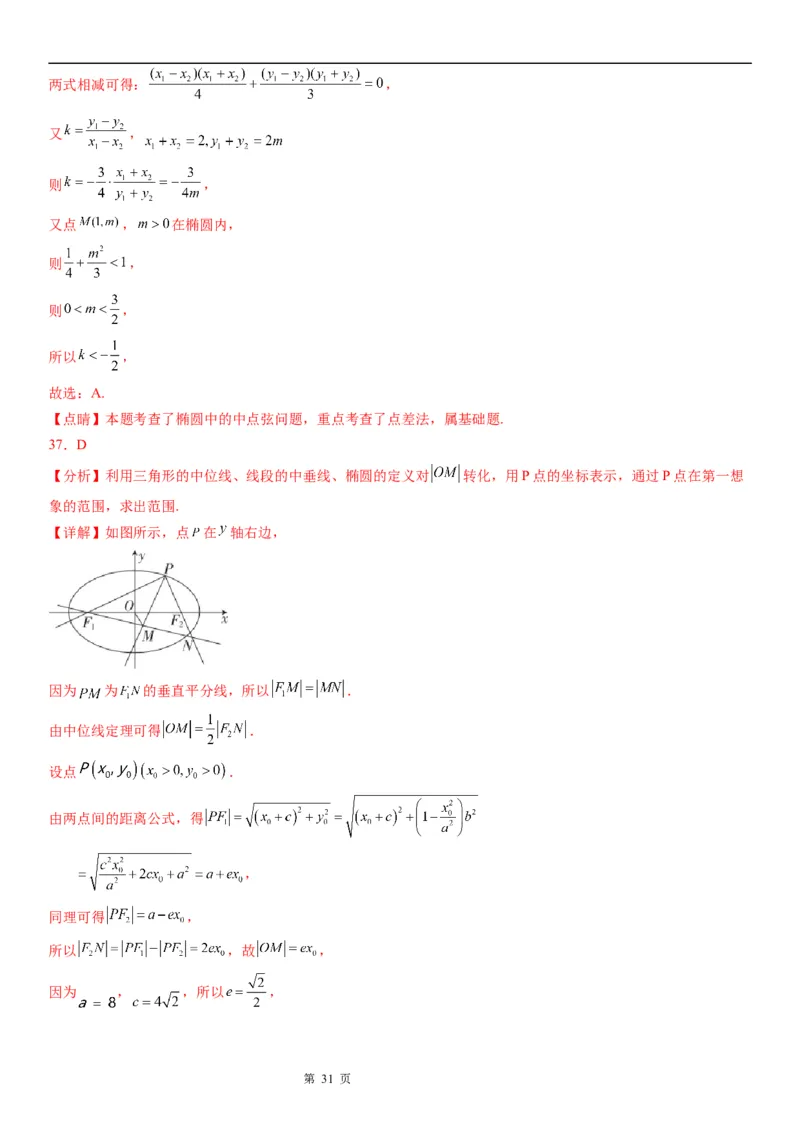 两式相减可得：(x₁－x₂)(x₁＋x₂)/4＋(y₁－y₂)(y₁＋y₂)/3＝0，
又k＝(y₁－y₂)/(x₁－x₂)，x₁＋x₂＝2, y₁＋y₂＝2m
则k＝－3/4·(x₁＋x₂)/(y₁＋y₂)＝－3/(4m)，
又点M(1,m)，m＞0在椭圆内，
则1/4＋m²/3＜1，
则0＜m＜3/2，
所以k＜－1/2，
故选：A.
【点睛】本题考查了椭圆中的中点弦问题，重点考查了点差法，属基础题.
37．D
【分析】利用三角形的中位线、线段的中垂线、椭圆的定义对|OM|转化，用P点的坐标表示，通过P点在第一想
象的范围，求出范围.
【详解】如图所示，点P在y轴右边，
y
P
O
F₁
F₂
x
M
N
因为PM为F₁N的垂直平分线，所以|F₁M|＝|MN|．
由中位线定理可得|OM|＝1/2|F₂N|．
设点P(x₀,y₀)(x₀＞0,y₀＞0)．
由两点间的距离公式，得|PF₁|＝√((x₀＋c)²＋y₀²)＝√((x₀＋c)²＋(1－x₀²/a²)b²)
＝√(c²x₀²/a²＋2cx₀＋a²)＝a＋ex₀，
同理可得|PF₂|＝a－ex₀，
所以|F₂N|＝|PF₁|－|PF₂|＝2ex₀，故|OM|＝ex₀，
因为a＝8，c＝4√2，所以e＝√2/2，
第 31 页